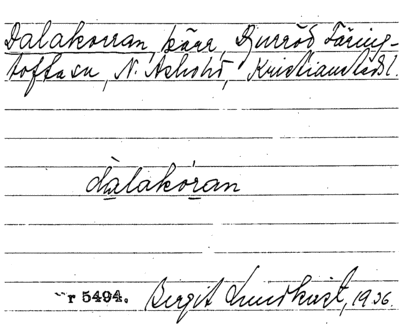 Dalakorran, kärr, Djurröd Färing-
toftasn, N. Åsbohd, Kristianstadsl.
dàlakó̱ran
r 5494. Birgit Lundkvist, 1936.